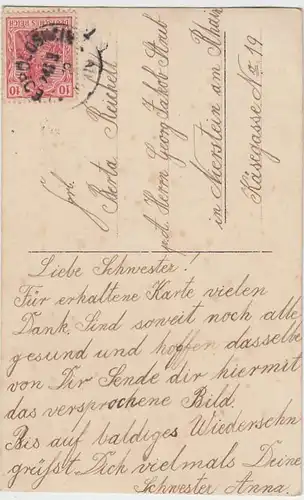 Frl.
Berta Reichelt
pst. Herrn Georg Jakob Staib
in Nierstein am Rhein
Käsegasse No 19
Liebe Schwester!
Für erhaltene Karte vielen
Dank. Sind soweit noch alle
gesund und hoffen dasselbe
von Dir Sende dir hiermit
das versprochene Bild.
Bis auf baldiges Wiedersehn
grüßt Dich vielmals Deine
Schwester Anna
10 10